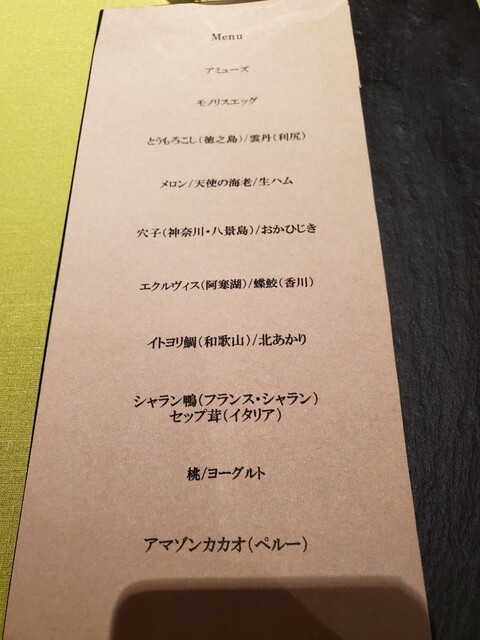 Menu
アミューズ
モノリスエッグ
とうもろこし(徳之島)/雲丹(利尻)
メロン/天使の海老/生ハム
穴子(神奈川・八景島)/おかひじき
エクルヴィス(阿寒湖)/蝶鮫(香川)
イトヨリ鯛(和歌山)/北あかり
シャラン鴨(フランス・シャラン)
セップ茸(イタリア)
桃/ヨーグルト
アマゾンカカオ(ペルー)